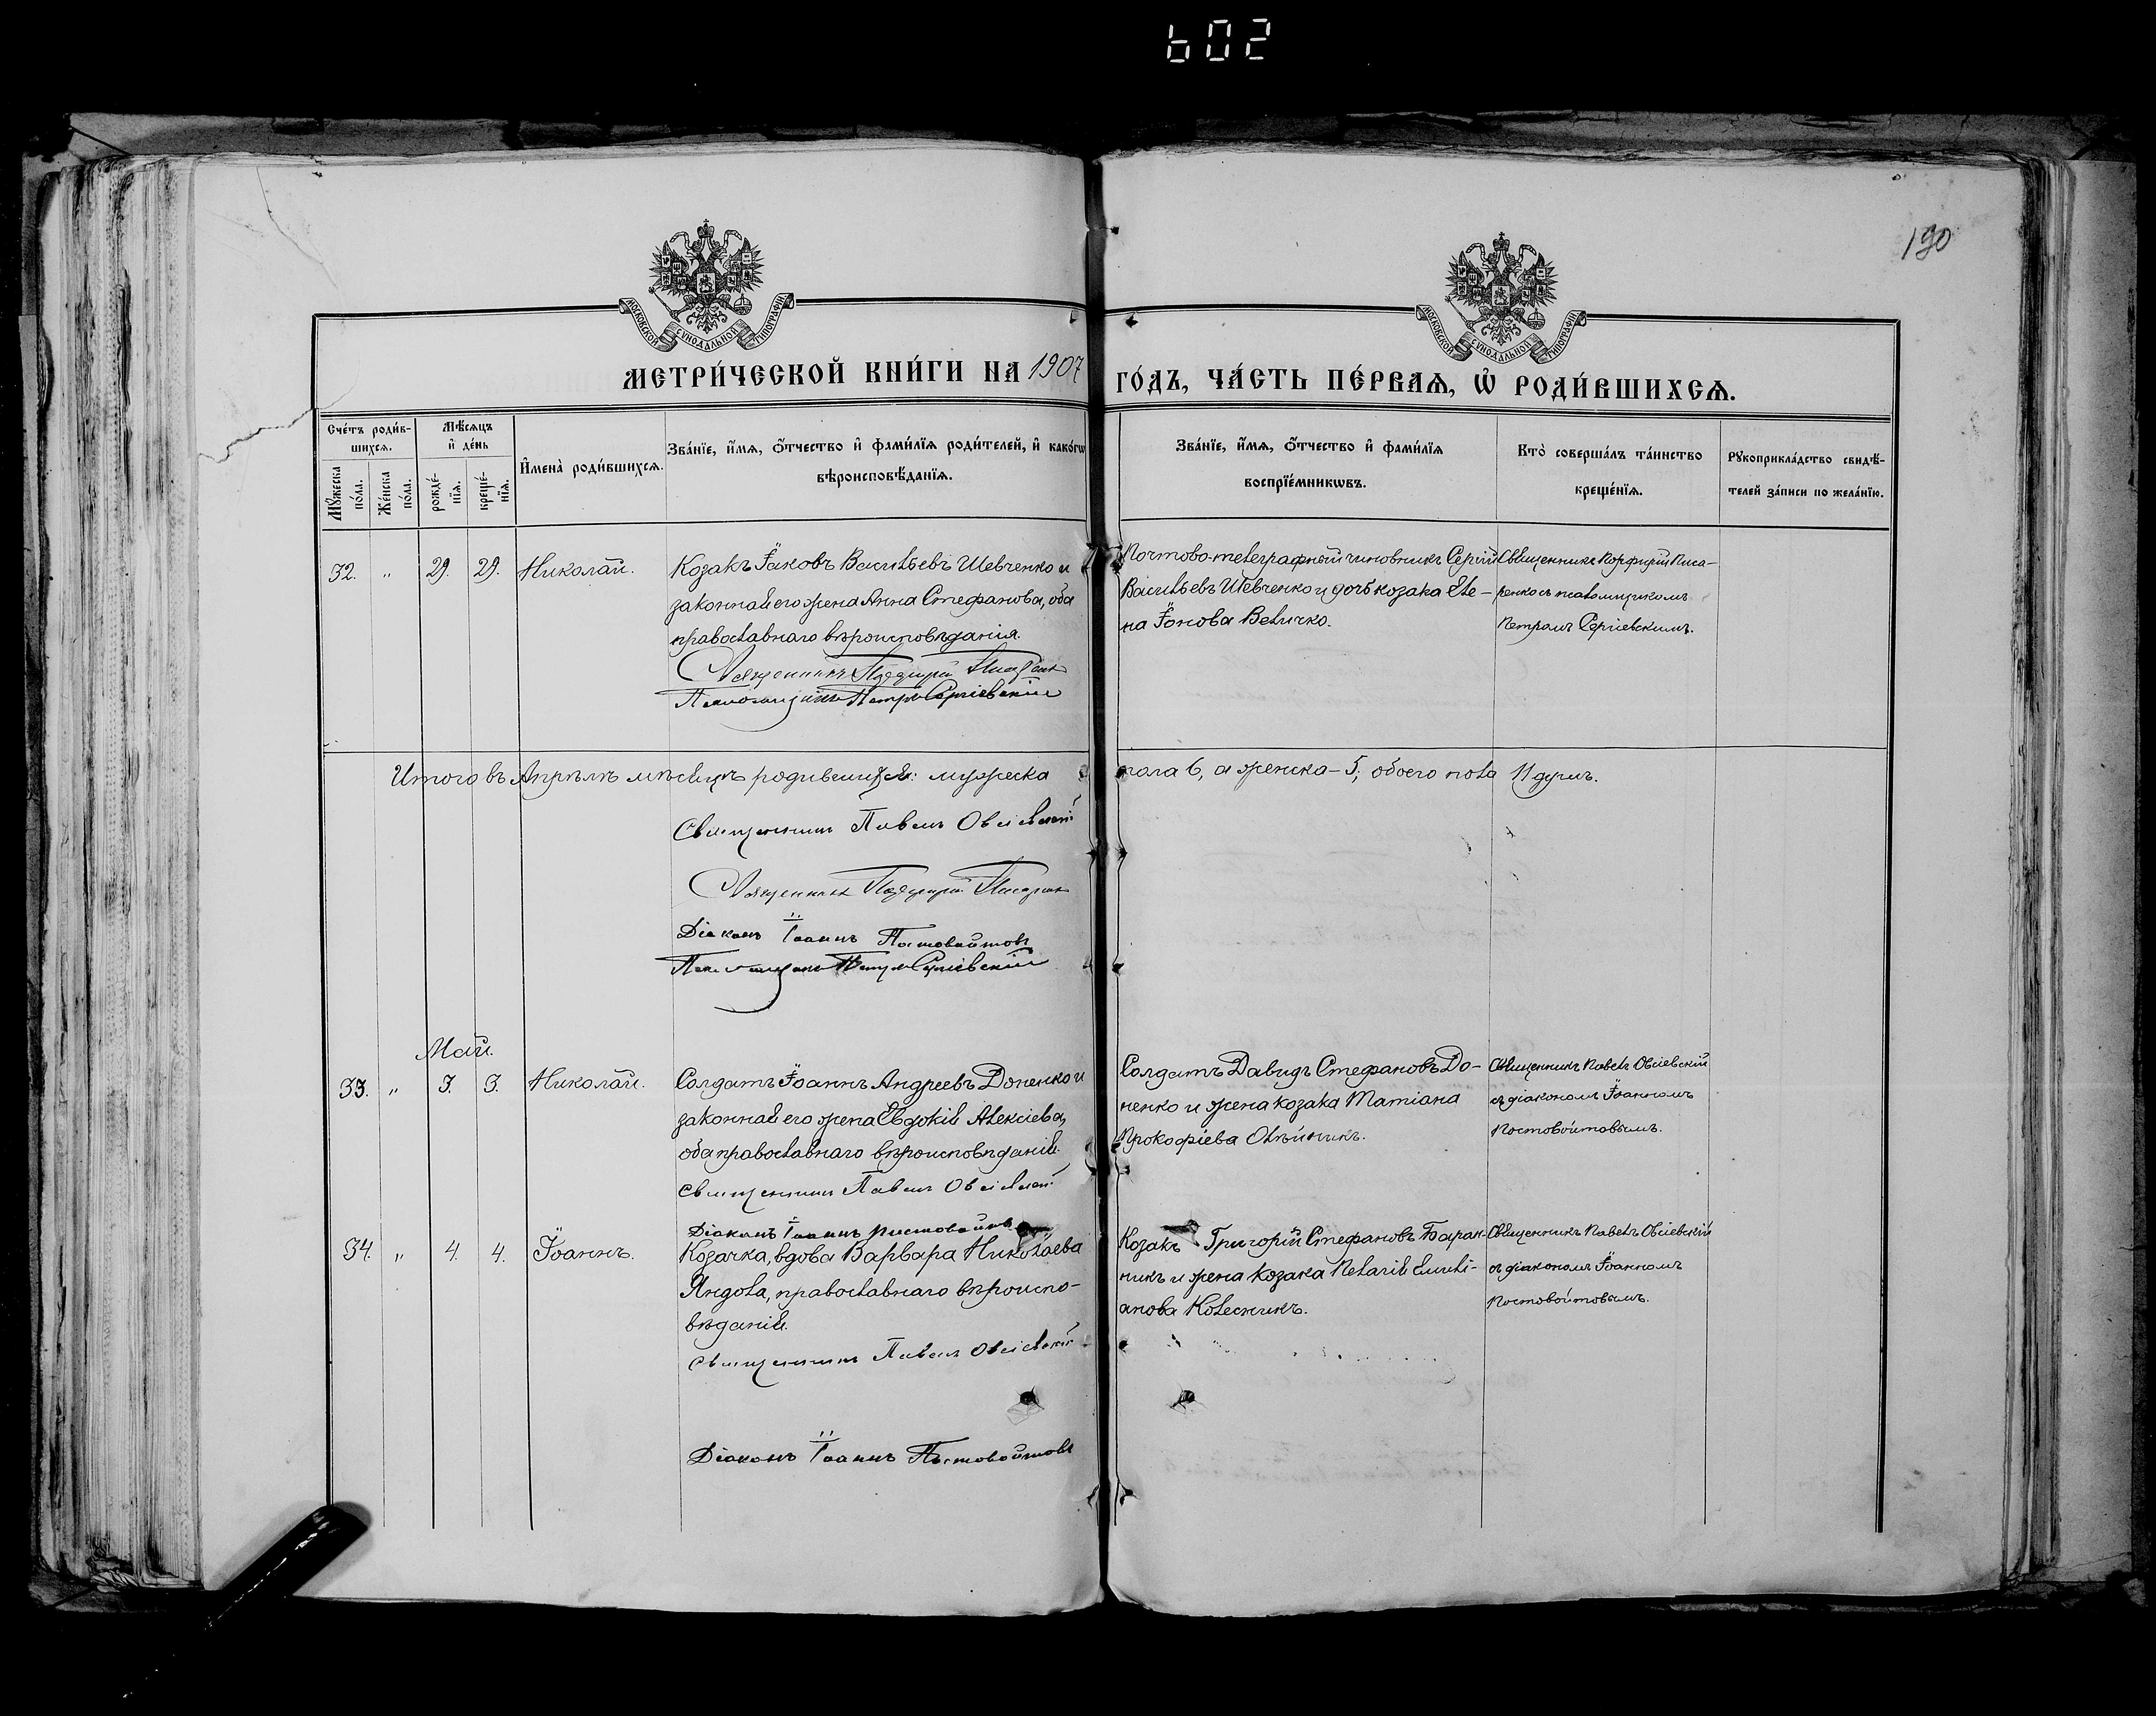 602
190
МОСКОВСКОЙ СѴНОДАЛЬНОЙ ТИПОГРАФІИ
МОСКОВСКОЙ СѴНОДАЛЬНОЙ ТИПОГРАФІИ
МЕТРИ́ЧЕСКОЙ КНИ́ГИ НА 1907 ГО́ДЪ, ЧА́СТЬ ПЕ́РВАѦ, Ѡ҆ РОДИ́ВШИХСѦ.
Сче́тъ роди́в-
шихсѧ.
Мꙋ́жеска по́ла.
Же́нска по́ла.
Мѣ́сѧцъ
и҆ де́нь
рожде́-
нїѧ.
креще́-
нїѧ.
И҆мена̀ роди́вшихсѧ.
Зва́нїе, и҆́мѧ, ѻ҆́тчество и҆ фами́лїѧ роди́телей, и҆ како́гѡ
вѣроисповѣ́данїѧ.
Зва́нїе, и҆́мѧ, ѻ҆́тчество и҆ фами́лїѧ
воспрїе́мникѡвъ.
Кто̀ соверша́лъ та́инство
креще́нїѧ.
Рꙋкоприкла́дство свидѣ́-
телей за́писи по жела́нїю.
32. " 29. 29. Николай.
Козакъ Іаковъ Васильевъ Шевченко и
законная его жена Анна Стефанова, оба
православнаго вѣроисповѣданія.
Священникъ Порфирій Писаренко
Псаломщикъ Петръ Сергіевскій
Почтово-телеграфный чиновникъ Сергій
Васильевъ Шевченко и дочь козака Еле-
на Іонова Величко.
Священникъ Порфирій Писа-
ренко съ псаломщикомъ
Петромъ Сергіевскимъ.
Итого въ Апрѣлѣ мѣсяцѣ родившихся: мужеска пола 6, а женска - 5; обоего пола 11 душъ.
Священникъ Павелъ Овсіевскій
Священникъ Порфирій Писаренко
Діаконъ Іоаннъ Постовойтовъ
Псаломщикъ Петръ Сергіевскій
Май.
33. " 3. 3. Николай.
Солдатъ Іоаннъ Андреевъ Доненко и
законная его жена Евдокія Алексіева,
оба православнаго вѣроисповѣданія.
Священникъ Павелъ Овсіевскій
Діаконъ Іоаннъ Постовойтовъ
Солдатъ Давидъ Стефановъ До-
ненко и жена козака Татіана
Прокофіева Олѣйникъ.
Священникъ Павелъ Овсіевскій
съ діакономъ Іоанномъ
Постовойтовымъ.
34. " 4. 4. Іоаннъ.
Козачка, вдова Варвара Николаева
Яндола, православнаго вѣроиспо-
вѣданія.
Священникъ Павелъ Овсіевскій
Діаконъ Іоаннъ Постовойтовъ
Козакъ Григорій Стефановъ Баран-
никъ и жена козака Пелагія Емили-
анова Колесникъ.
Священникъ Павелъ Овсіевскій
съ діакономъ Іоанномъ
Постовойтовымъ.